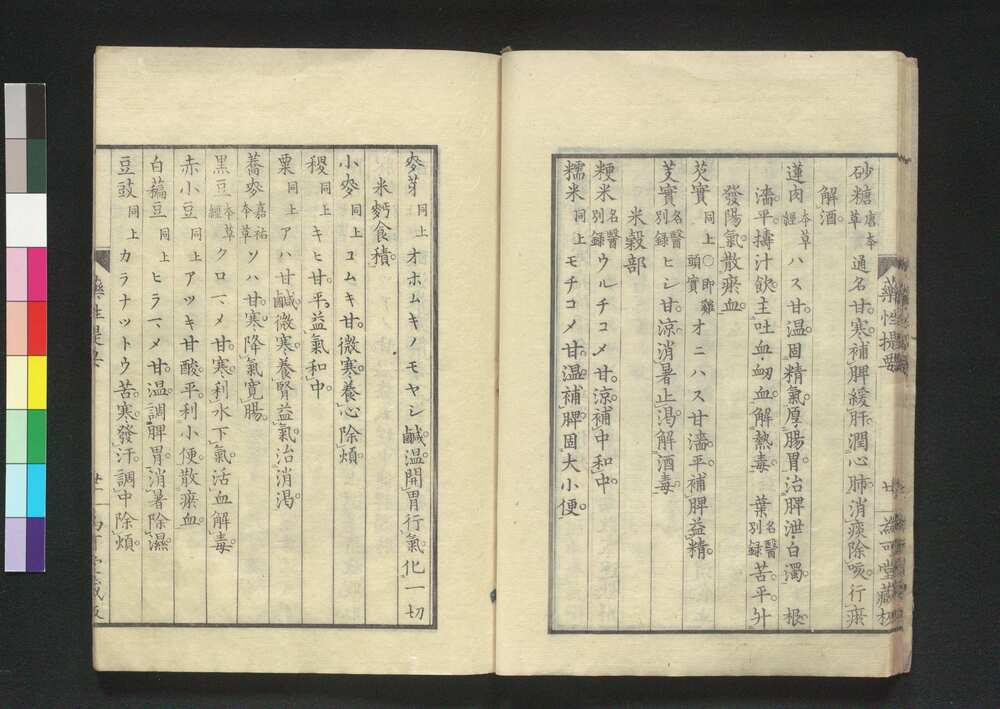 藥性提要 廿 為可堂藏板
砂糖 唐本草 通名甘。寒。補脾緩肝。潤心肺。消痰除咳。行瘀
解酒。
蓮肉 本草經 ハス甘。温。固精氣。厚腸胃。治脾泄。白濁。 根
濇。平。擣汁飲。主吐血。衂血。解熱毒。 葉 名醫別錄 苦。平。升
發陽氣。散瘀血。
芡實 同上 ○即雞頭實 オニハス甘濇。平補脾益精。
芰實 名醫別錄 ヒシ甘。涼。消暑止渴。解酒毒。
米穀部
粳米 名醫別錄 ウルチコメ甘。涼。補中和中。
糯米 同上 モチコメ甘。温。補脾固大小便。
麥芽 同上 オホムキノモヤシ鹹。温。開胃行氣。化一切
米麪食積。
小麥 同上 コムキ甘。微寒。養心除煩。
稷 同上 キヒ甘。平。益氣和中。
粟 同上 アハ甘鹹。微寒。養腎益氣。治消渴
蕎麥 嘉祐本草 ソハ甘。寒。降氣寛腸。
黒豆 本草經 クロマメ甘。寒。利水下氣。活血解毒。
赤小豆 同上 アツキ甘酸。平。利小便。散瘀血。
白藊豆 同上 ヒラマメ甘。温。調脾胃。消暑除濕。
豆豉 同上 カラナットウ苦。寒。發汗。調中除煩。
藥性提要 廿一